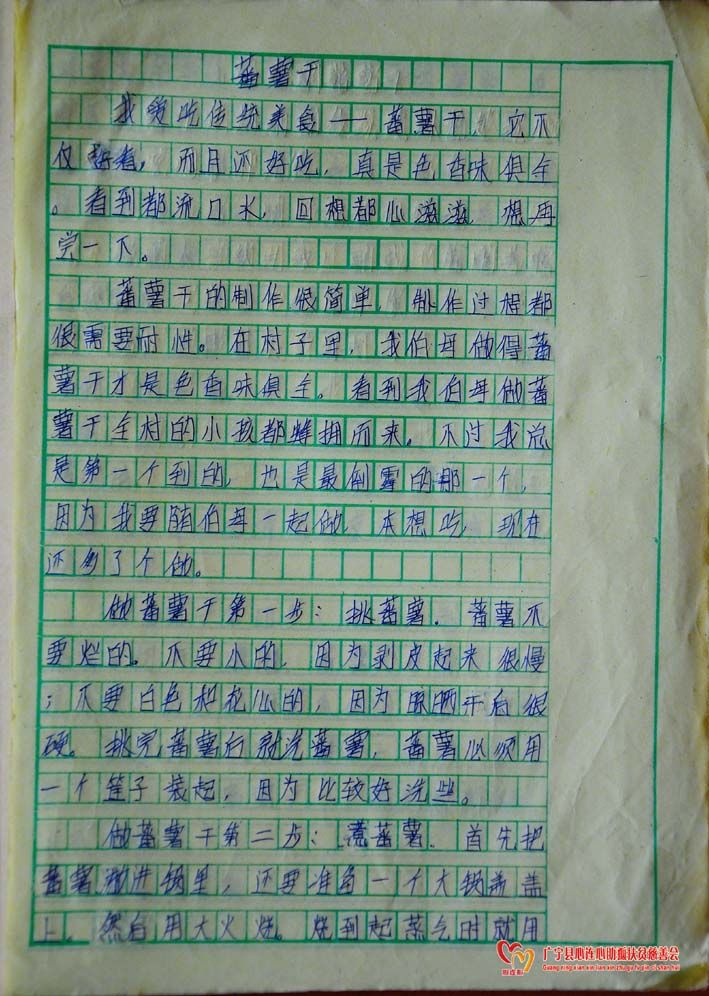 蕃薯干
我爱吃传统美食——蕃薯干，它不
仅好看，而且还好吃，真是色香味俱全
。看到都流口水，回想都心滋滋，想再
尝一下。
蕃薯干的制作很简单，制作过程都
很需要耐性。在村子里，我伯母做得蕃
薯干才是色香味俱全。看到我伯母做蕃
薯干全村的小孩都蜂拥而来。不过我总
是第一个到的，也是最倒霉的那一个，
因为我要随伯母一起做，本想吃，现在
还多了个做。
做蕃薯干第一步：挑蕃薯．蕃薯不
要烂的。不要小的，因为剥皮起来很慢
；不要白色和花心的，因为晒干后很
硬。挑完蕃薯后就洗蕃薯，蕃薯必须用
一个筐子装起，因为比较好洗些。
做蕃薯干第二步：煮蕃薯．首先把
蕃薯进锅里，还要准备一个大锅盖盖
上。然后用大火烧。烧到起蒸气时就用
心连心
广宁县心连心助孤扶贫慈善会